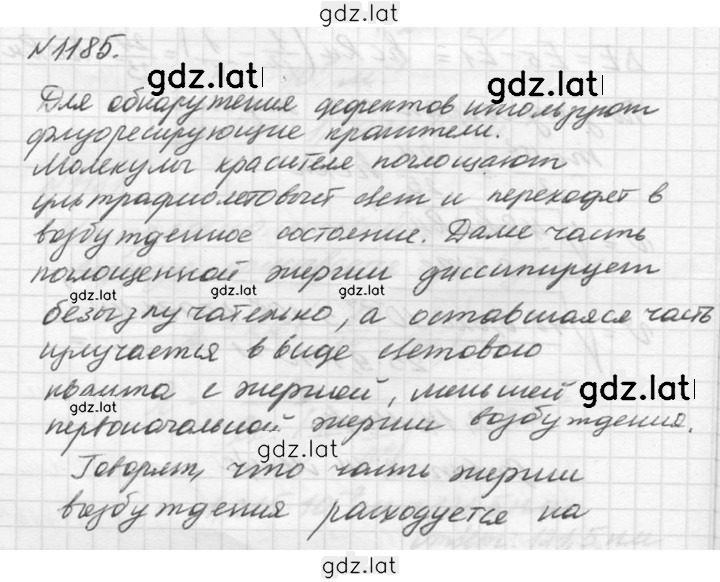 gdz.lat
№1185.
gdz.lat gdz.lat
Для обнаружения дефектов используют
флуоресцирующие красители.
Молекулы красителе поглощают
ультрафиолетовый свет и переходят в
возбужденное состояние. Далее часть
поглощенной энергии диссипирует
gdz.lat gdz.lat gdz.lat
безызлучательно, а оставшаяся часть
излучается в виде светового
кванта с энергией, меньшей gdz.lat
gdz.lat
первоначальной энергии возбуждения.
gdz.lat
Говорят, что часть энергии
возбуждения расходуется на
gdz.lat